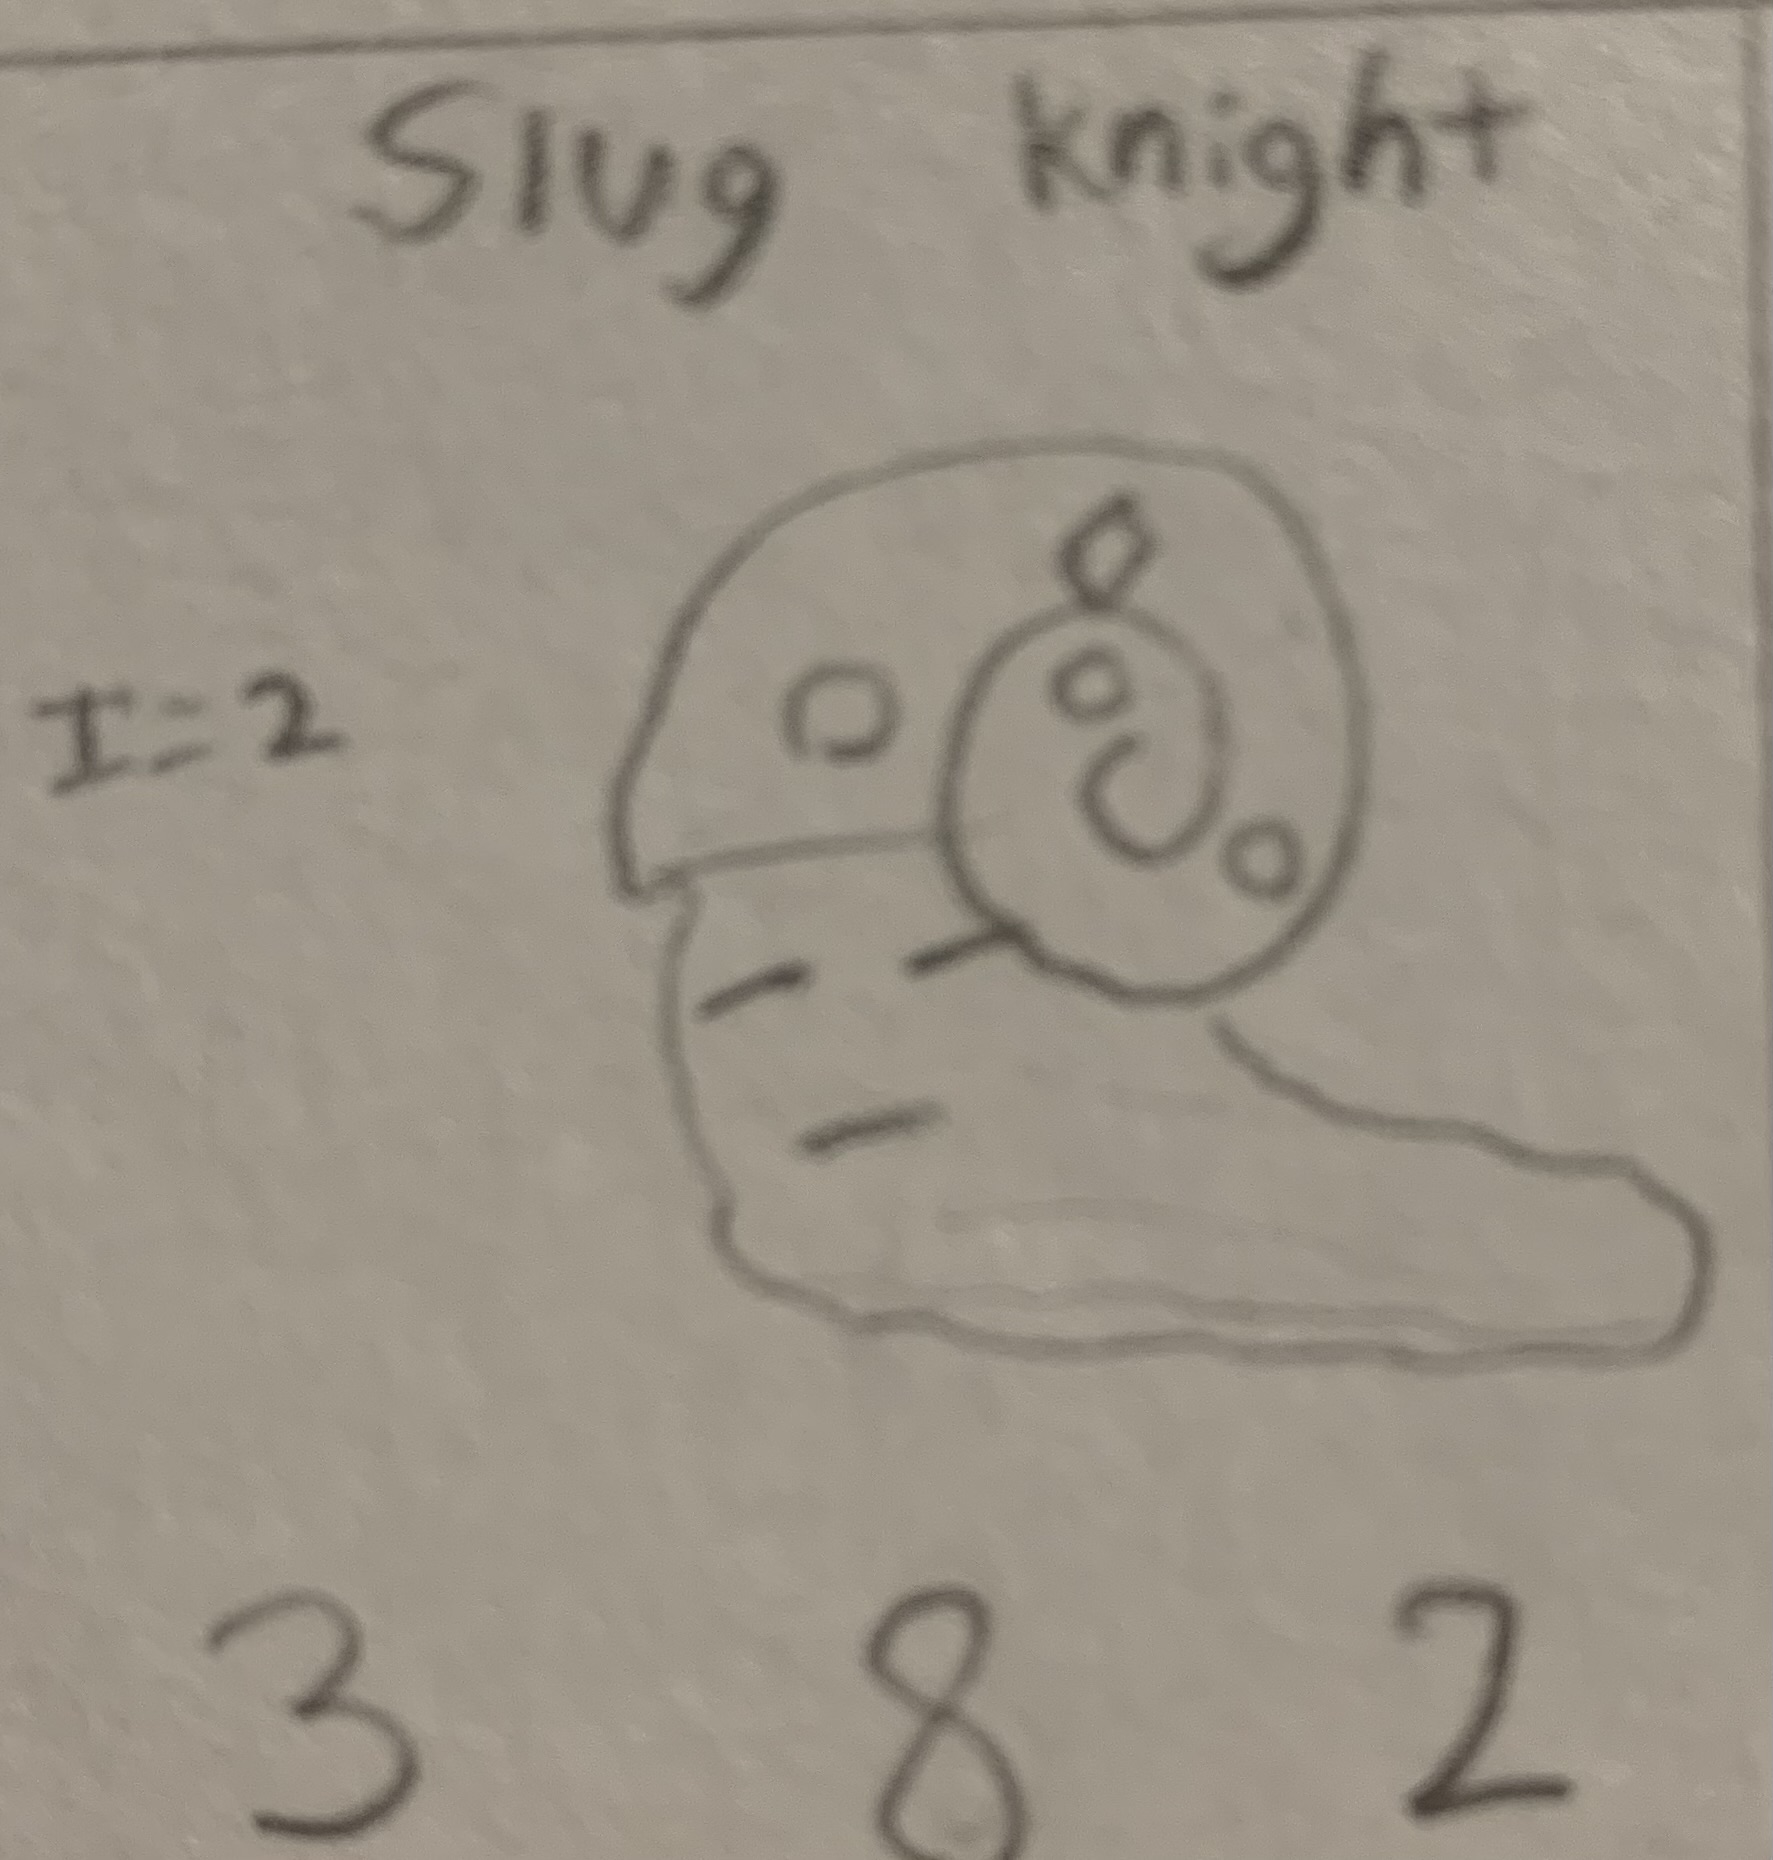 Slug knight
I=2
3 8 2